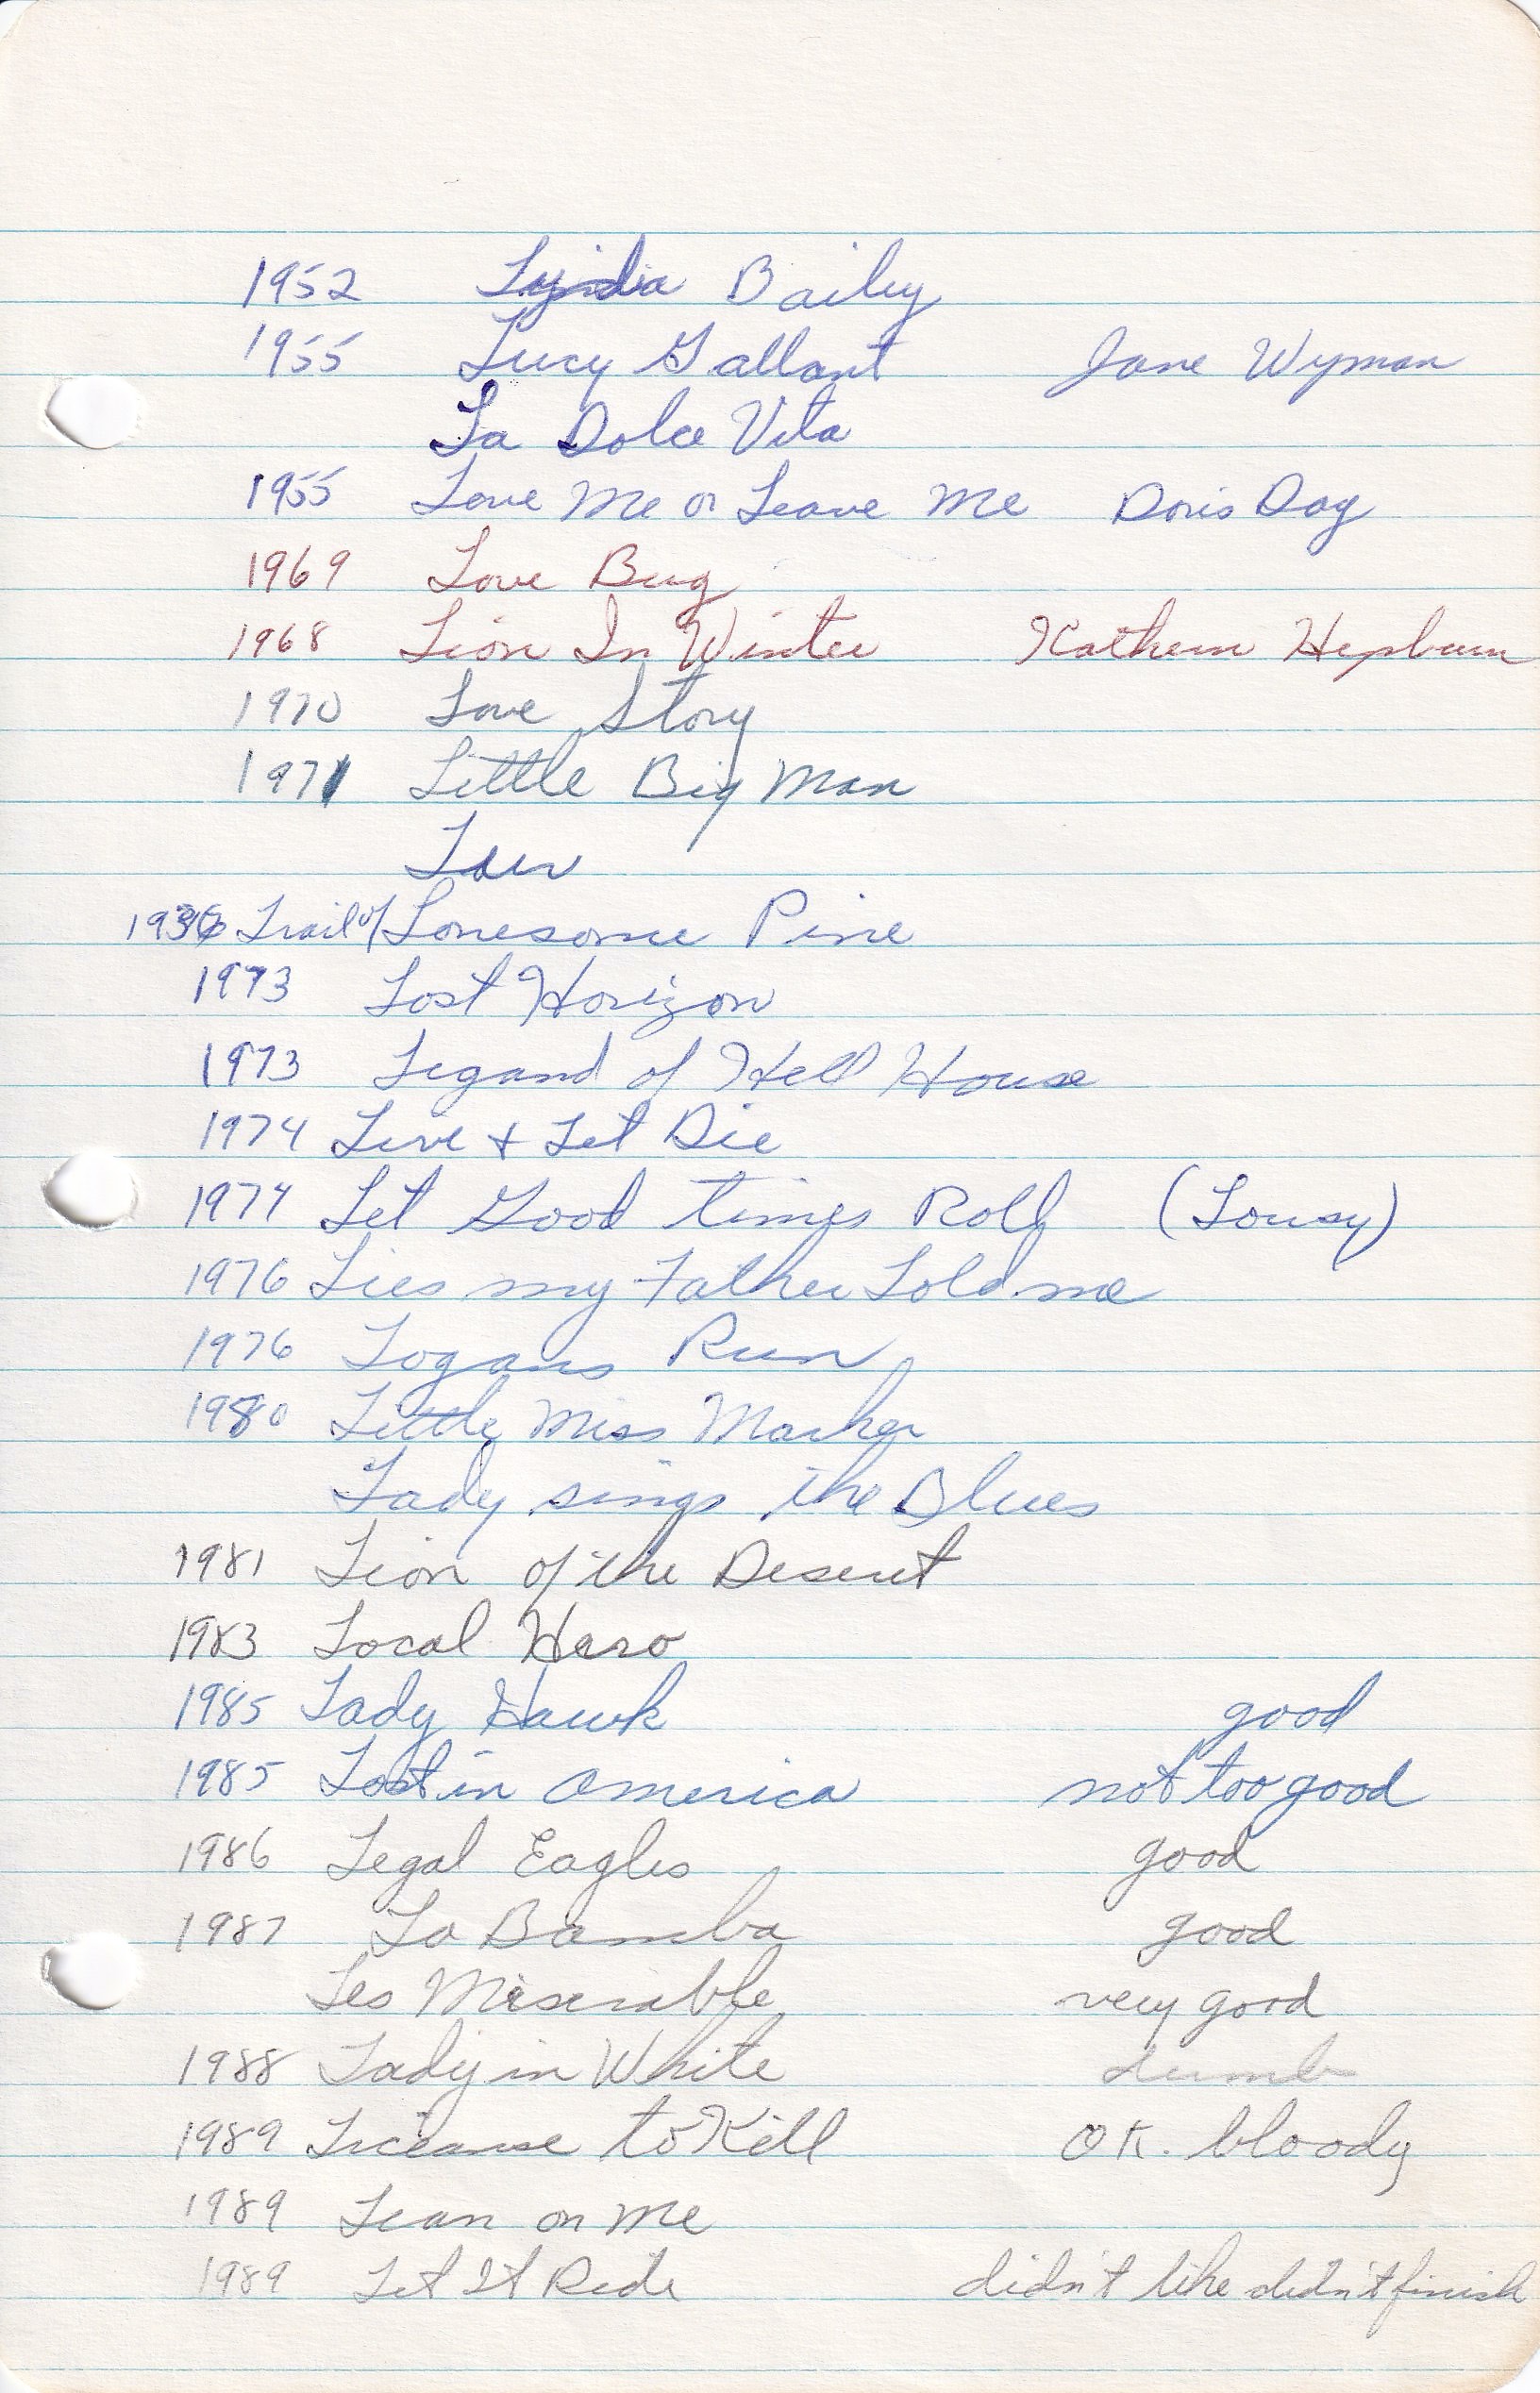 1952 Lydia Bailey
1955 Lucy Gallant Jane Wyman
La Dolce Vita
1955 Love Me or Leave Me Doris Day
1969 Love Bug
1968 Lion In Winter Kathern Hepburn
1970 Love Story
1971 Little Big Man
1936 Trail of Lonesome Pine
1973 Lost Horizon
1973 Legand of Hell House
1974 Live + Let Die
1974 Let Good times Roll (Lousy)
1976 Lies my Father Told me
1976 Logans Run
1980 Little Miss Marker
Lady sings the Blues
1981 Lion of the Desert
1983 Local Hero
1985 Lady Hawk good
1985 Lost in America not too good
1986 Legal Eagles good
1987 La Bamba good
Les Miserable very good
1988 Lady in White dumb
1989 to Kill OK. bloody
1989 Lean on Me
1989 Let It Ride didn't like didn't finish